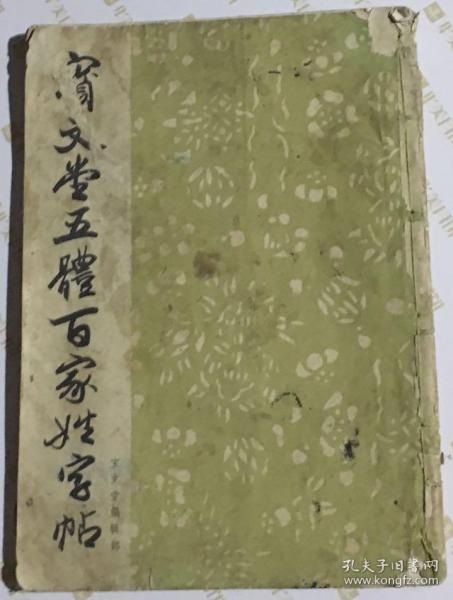 寳文堂五體百家姓字帖
寳文堂編輯部
孔夫子旧书网
www.kongfz.com